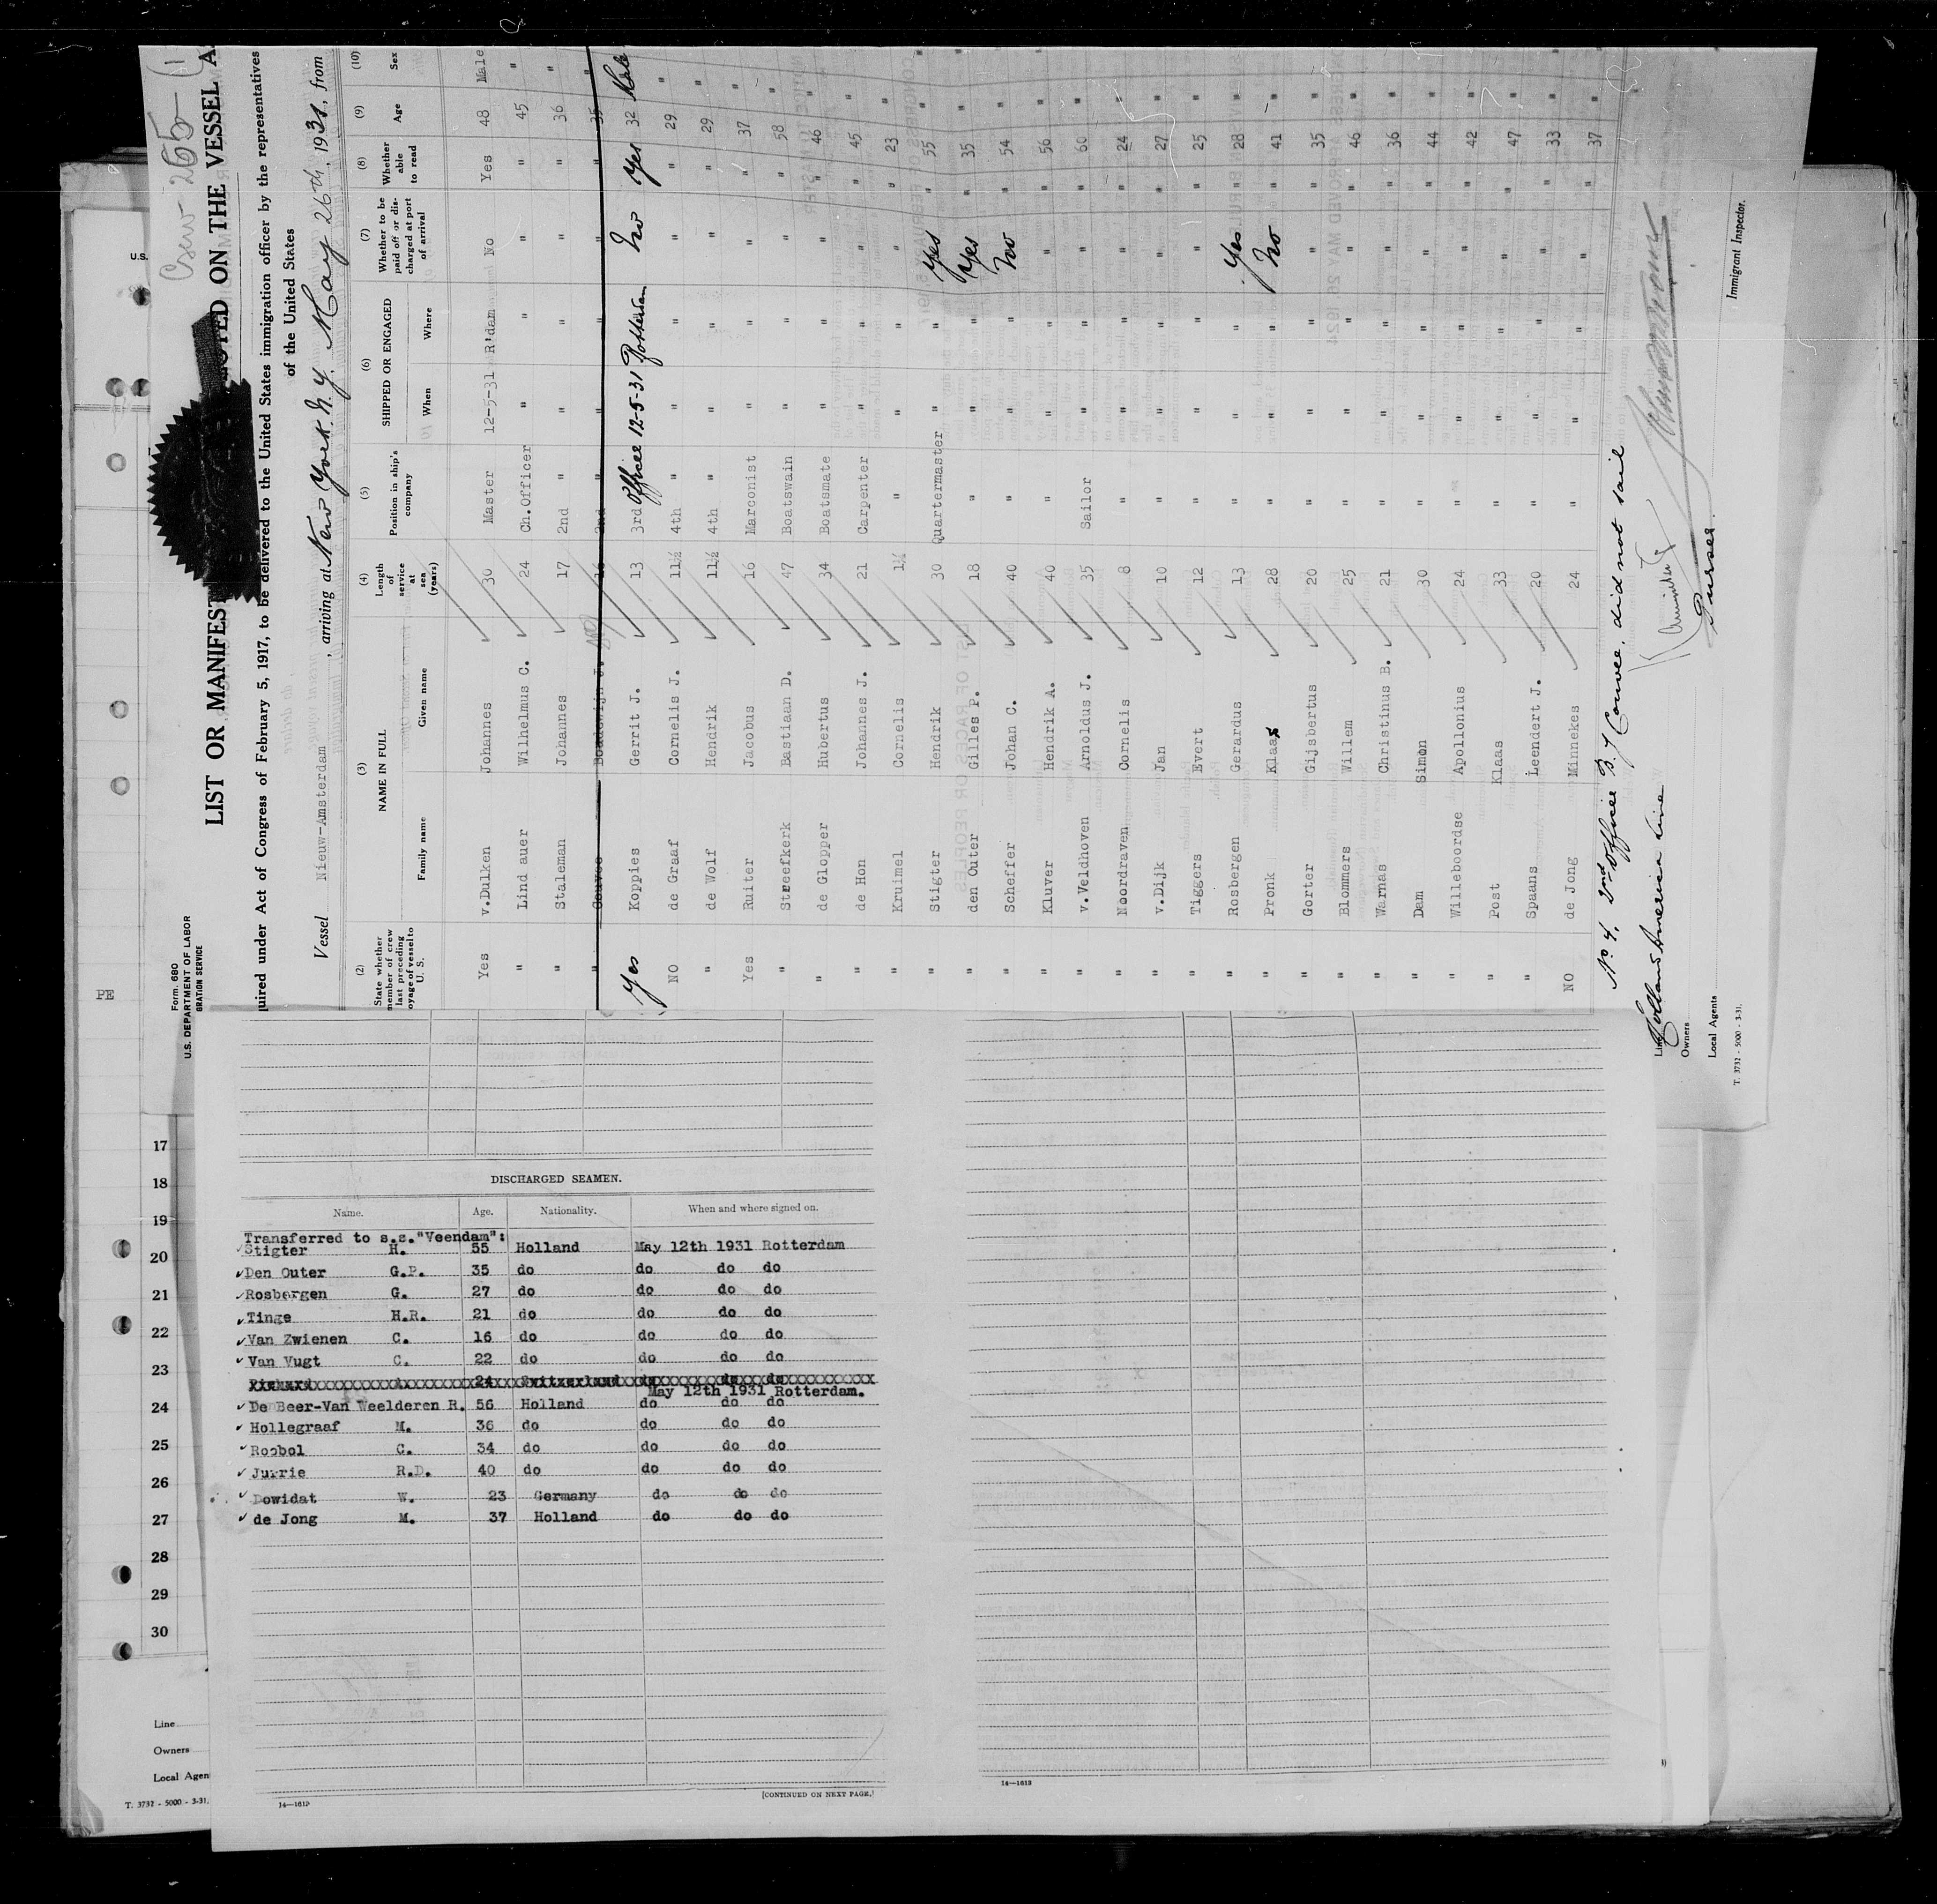 Crew - 265 - (1
LIST OR MANIFEST
ON THE VESSEL A
quired under Act of Congress of February 5, 1917, to be delivered to the United States immigration officer by the representatives
of the United States
Vessel Nieuw-Amsterdam , arriving at New York. N. Y. May 26th, 1931, from
Form. 680
U.S. DEPARTMENT OF LABOR
GRATION SERVICE
(2) (3) (4) (5) (6) (7) (8) (9) (10)
State whether member of crew last preceding oyage of vessel to U. S. | NAME IN FULL | Length of service at sea (years) | Position in ship's company | SHIPPED OR ENGAGED | Whether to be paid off or dis- charged at port of arrival | Whether able to read | Age | Sex
Family name | Given name | When | Where
Yes v.Dulken Johannes 30 Master 12-5-31 R'dam No Yes 48 Male
" Lind auer Wilhelmus C. 24 Ch.Officer " " " " 45 "
" Staleman Johannes 17 2nd " " " " " 36 "
" Couvee Boudewijn J. 16 2nd " " " " " 35 "
Yes Koppies Gerrit J. 13 3rd Officer 12-5-31 Rotterdam No Yes 32 Male
NO de Graaf Cornelis J. 11½ 4th " " " " " 29 "
" de Wolf Hendrik 11½ 4th " " " " " 29 "
Yes Ruiter Jacobus 16 Marconist " " " " 37 "
" Streefkerk Bastiaan D. 47 Boatswain " " " " 58 "
" de Glopper Hubertus 34 Boatsmate " " " " 46 "
" de Hon Johannes J. 21 Carpenter " " " " 45 "
" Kruimel Cornelis 1½ " " " " " 23 "
" Stigter Hendrik 30 Quartermaster " " Yes " 55 "
" den Outer Gilles P. 18 " " " Yes " 35 "
" Scheffer Johan C. 40 " " " No " 54 "
" Kluver Hendrik A. 40 " " " " " 56 "
" v.Veldhoven Arnoldus J. 35 Sailor " " " " 60 "
" Noordraven Cornelis 8 " " " " " 24 "
" v.Dijk Jan 10 " " " " " 27 "
" Tiggers Evert 12 " " " " " 25 "
" Rosbergen Gerardus 13 " " " Yes " 28 "
" Pronk Klaas 28 " " " No " 41 "
" Gorter Gijsbertus 20 " " " " " 35 "
" Blommers Willem 25 " " " " " 46 "
" Warnas Christinus B. 21 " " " " " 36 "
" Dam Simon 30 " " " " " 44 "
" Willeboordse Apollonius 24 " " " " " 42 "
" Post Klaas 33 " " " " " 47 "
" Spaans Leendert J. 20 " " " " " 33 "
NO de Jong Minnekes 24 " " " " " 37 "
No 4, 2nd officer B. J. Couvee, did not sail
Line Holland America Line
Owners
Local Agents
Purser
Immigrant Inspector.
T. 3732 - 5000 - 3-31.
U.S.
PE
17
18
19
20
21
22
23
24
25
26
27
28
29
30
Line
Owners
Local Agen
T. 3732 - 5000 - 3-31.
DISCHARGED SEAMEN.
Name. Age. Nationality. When and where signed on.
Transferred to s.s."Veendam":
Stigter H. 55 Holland May 12th 1931 Rotterdam
Den Outer G.P. 35 do do do do
Rosbergen G. 27 do do do do
Tinge H.R. 21 do do do do
Van Zwienen C. 16 do do do do
Van Vugt C. 22 do do do do
24 Switzerland do do do
May 12th 1931 Rotterdam.
De Beer-Van Weelderen R. 56 Holland do do do
Hollegraaf M. 36 do do do do
Roobol C. 34 do do do do
Jurrie R.D. 40 do do do do
Dowidat W. 23 Germany do do do
de Jong M. 37 Holland do do do
14—1612
[CONTINUED ON NEXT PAGE.]
14—1612